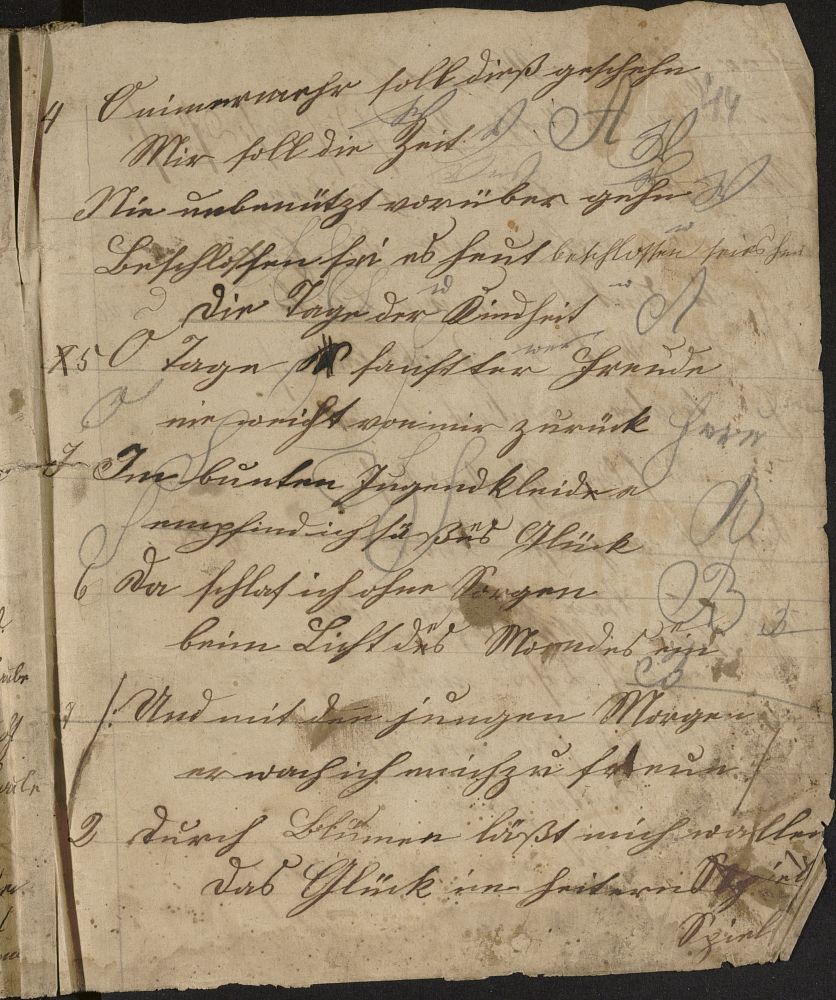 4 O nimmermehr soll dieß geschehn 44
Mir soll die Zeit A
Nie unbenützt vorüber gehn
Beschlossen sei es heut beschlossen sei es heu
Die Tage der Kindheit
5 O Tage sanftter Freude
nie weicht von mir zurück
Im bunten Jugendkleide
empfind ich süßes Glück
6 Da schlaf ich ohne Sorgen B
beim Licht des Mondes ein
/: Und mit den jungen Morgen
erwach ich mich zu freun :/
2 Durch Blumen läßt mich wallen
Das Glück im heitern Spiel
Spiel